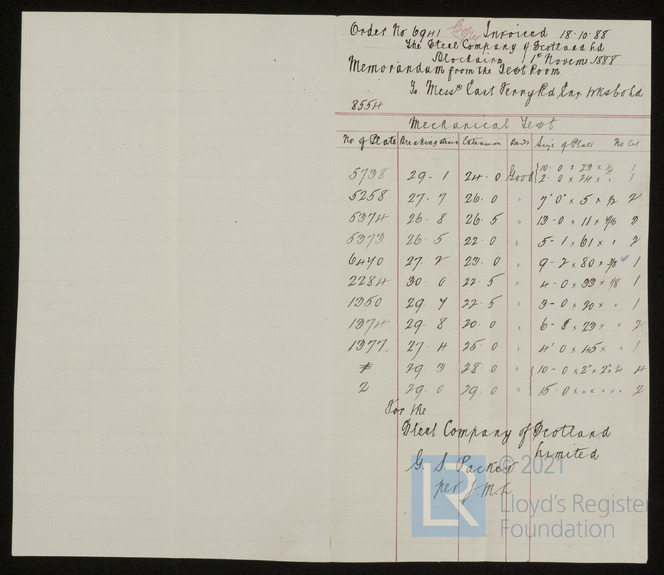 Order No 6941 Copy Invoiced 18.10.88
The Steel Company of Scotland Ld
Blochairn 1st Novem 1888
Memorandum from the Test Room
To Messrs East Ferry Rd Eng. Wks Co Ld
8554
Mechanical Test
No. of Plate Breaking Strain Extension Bends Size of Plate No Cut
5798 29.1 24.0 Good 10.0 x 29 x 1
2.0 x 24 x " 1
5258 27.7 26.0 " 7'0" x 5 x 1/2 2
5974 26.8 26.5 " 19-0 x 11 x
5979 26.5 22.0 " 5-1 x 61 x " 2
6440 27.2 29.0 " 9-2 x 80 x 3/8 1
2284 30.0 22.5 " 4-0 x 39 x 1
1950 29.7 22.5 " 9-0 x 20 x " 1
1974 29.8 20.0 " 6-8 x 29 x " 2
1977. 27.4 25.0 " 4'0 x 45 x " 1
29.9 28.0 " 10-0 x 2" x 4
2 29.0 29.0 " 15-0 x " " " " 2
For the
Steel Company of Scotland
Limited
G. S. Packer
per J.M.L
© 2021
LR
Lloyd's Register
Foundation